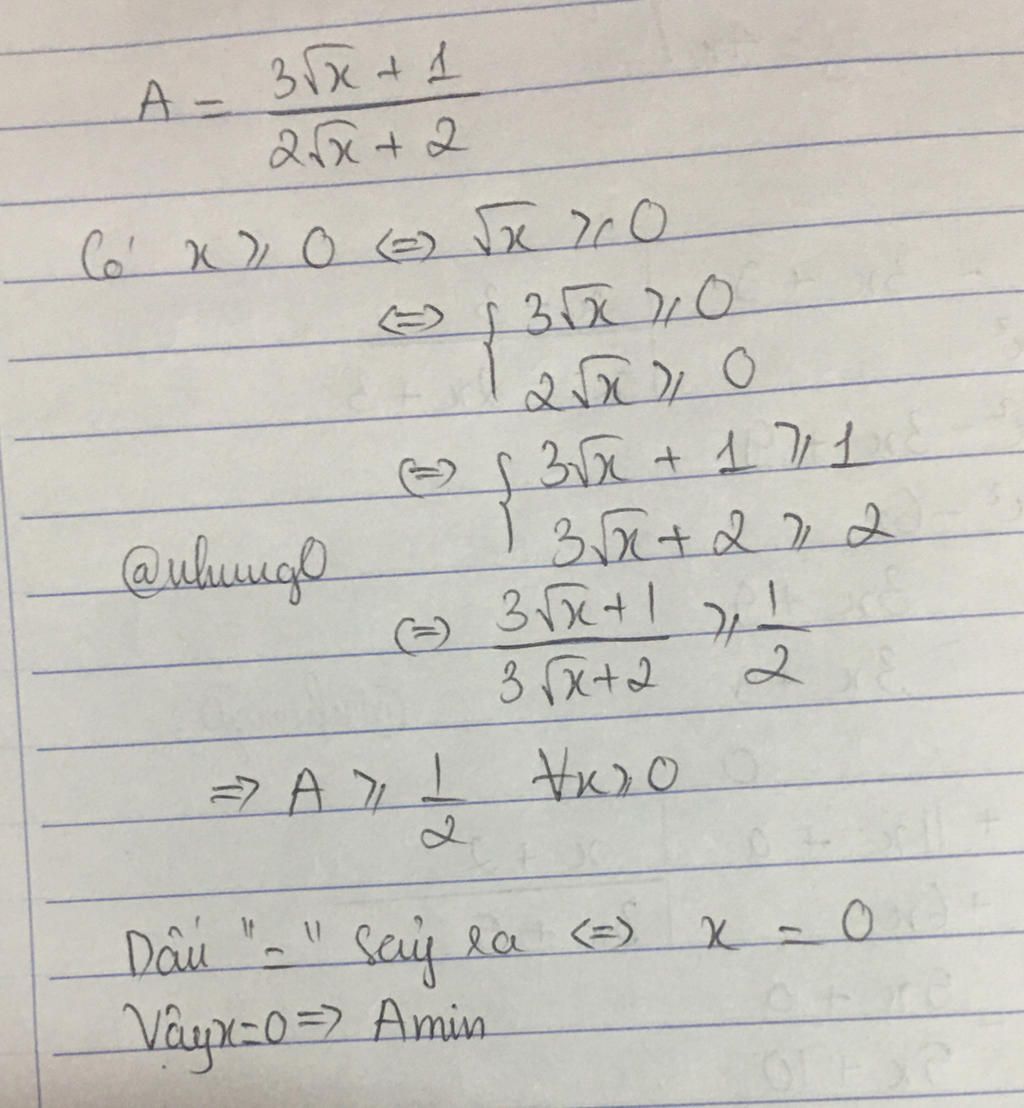 A = (3√x + 1)/(2√x + 2)
Có x ≥ 0 <=> √x ≥ 0
<=> { 3√x ≥ 0
2√x ≥ 0
<=> { 3√x + 1 ≥ 1
3√x + 2 ≥ 2
@nhung0
<=> (3√x+1)/(3√x+2) ≥ 1/2
=> A ≥ 1/2 ∀x≥0
Dấu "=" sảy ra <=> x = 0
Vâỵ x=0 => Amin